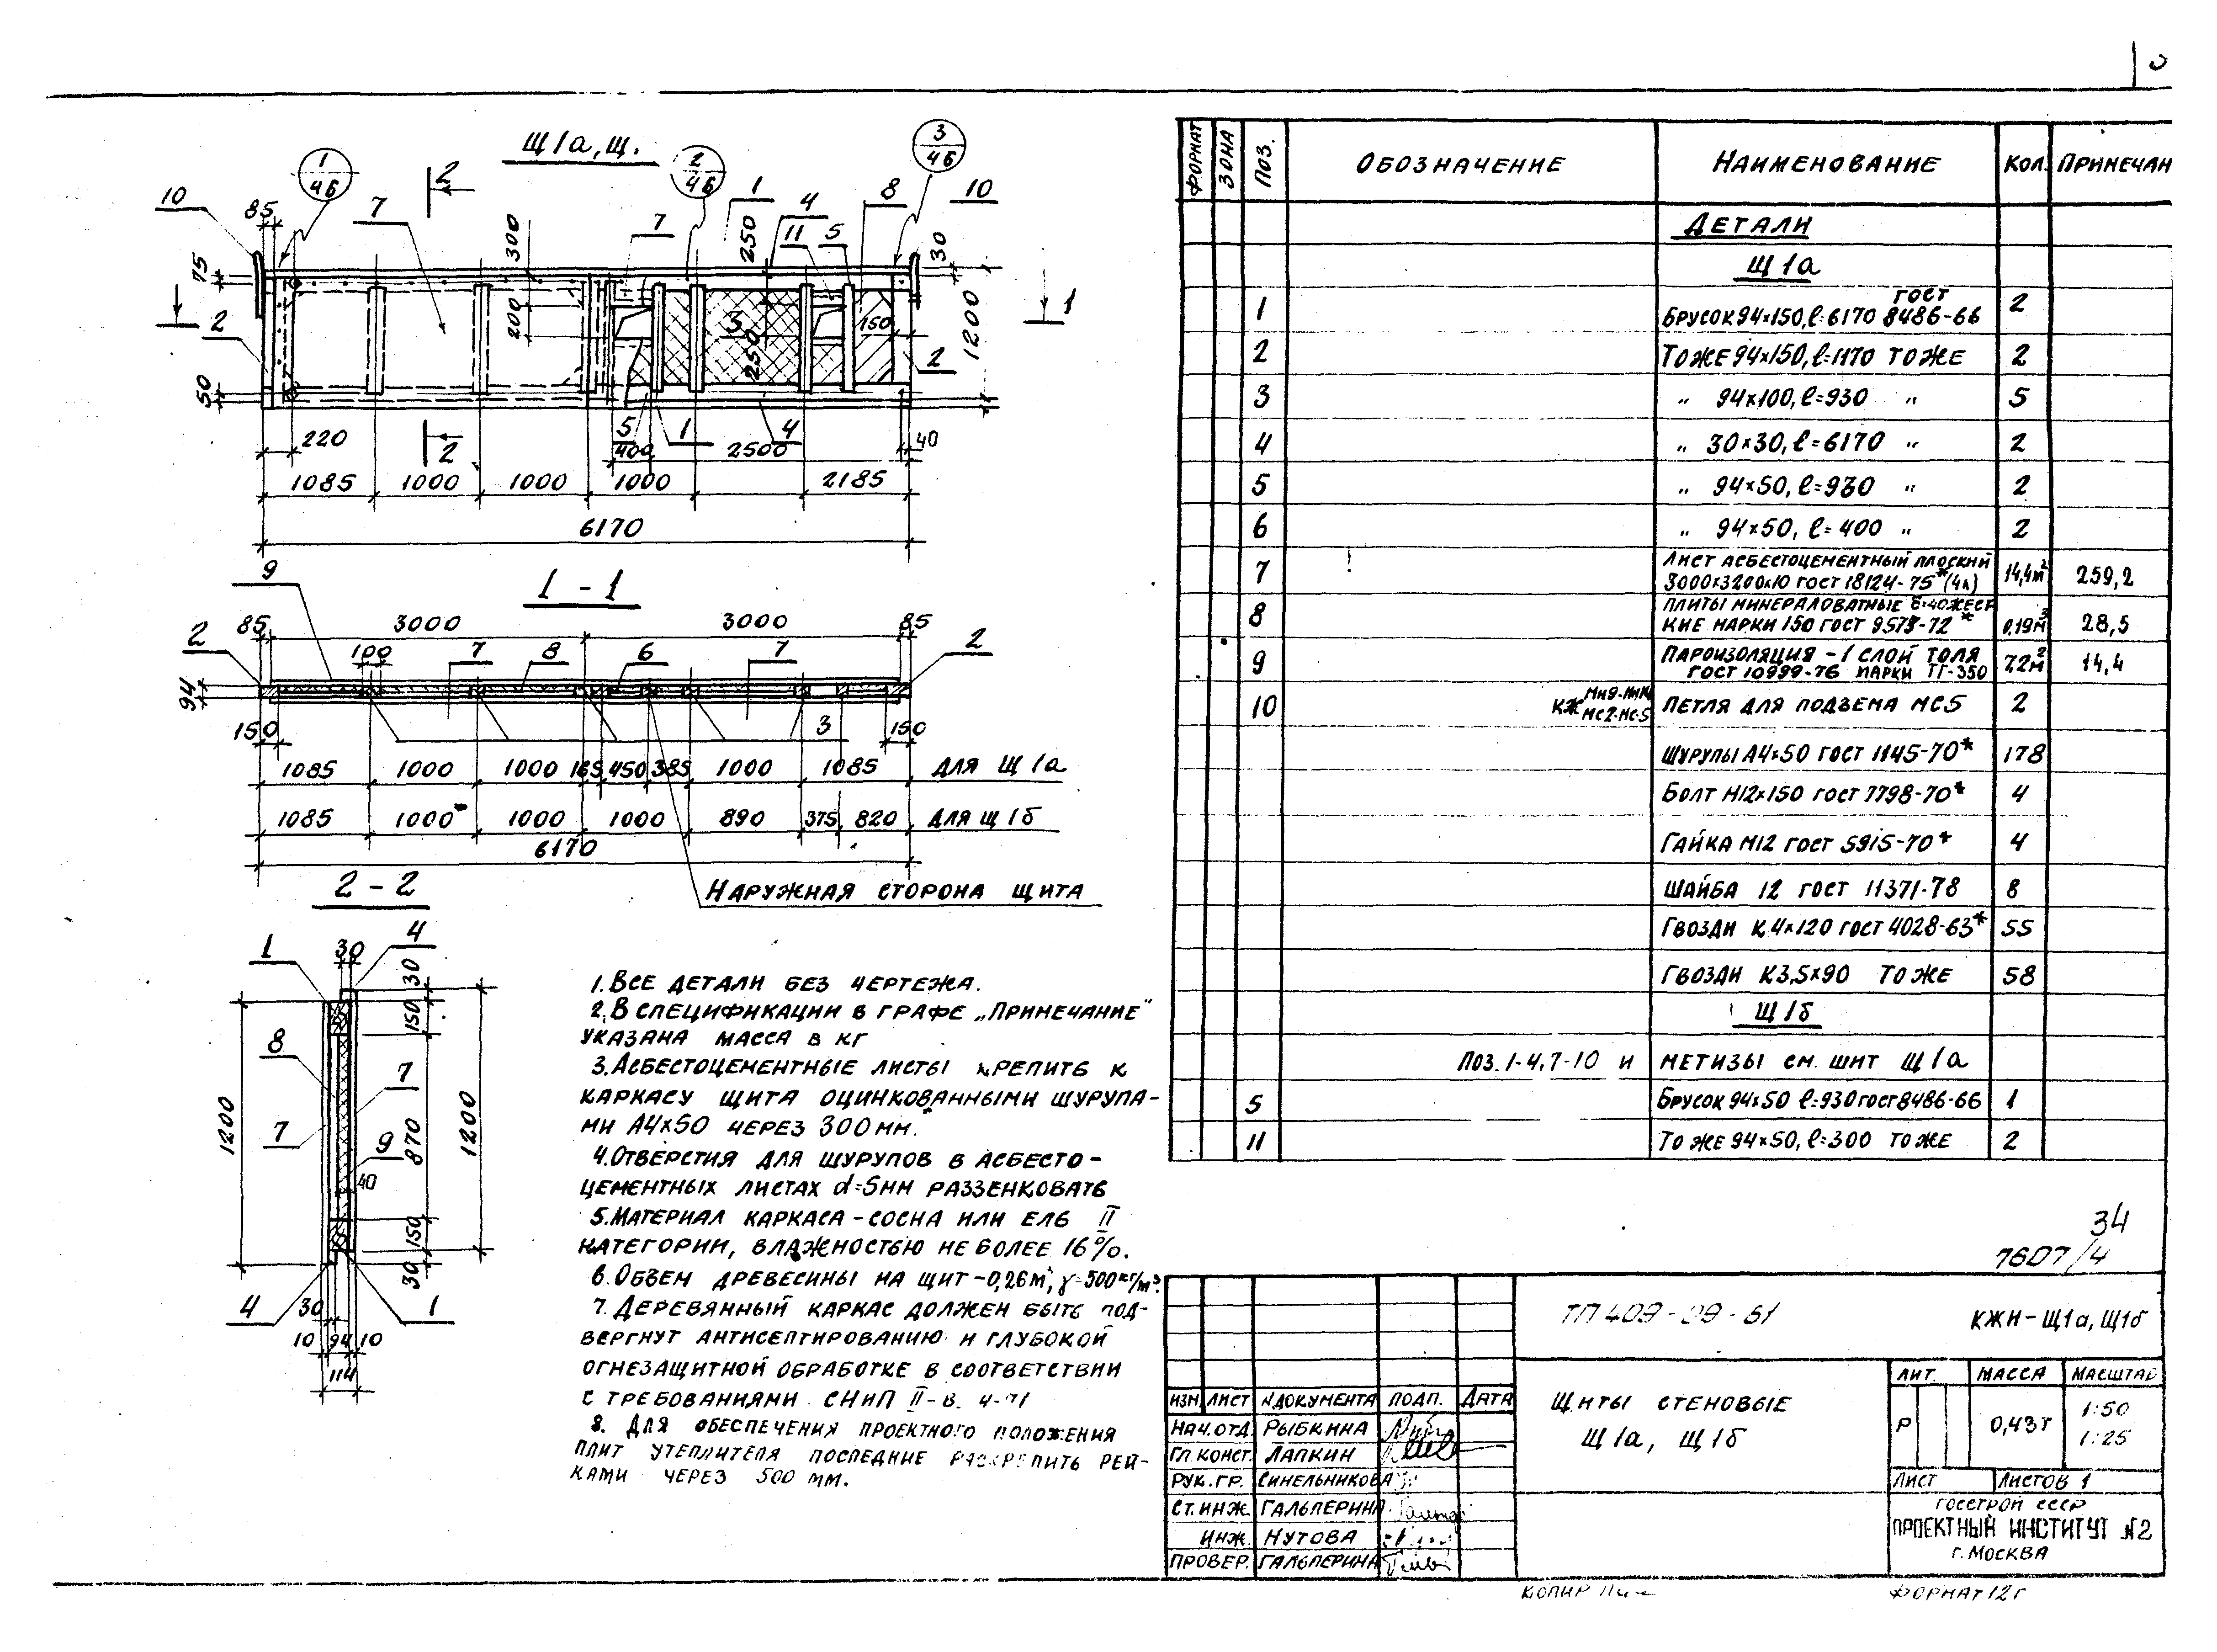 Щ1а, Щ.
1/46
2/46
3/46
10
85
7
2
7
1
4
8
10
300
250
11
5
30
75
2
200
3
150
1200
1
2
50
250
220
2
5
400
1
4
2500
40
1085
1000
1000
1000
2185
6170
1 - 1
9
85
3000
3000
85
2
100
7
8
6
7
2
94
150
3
150
1085
1000
1000
165
450
385
1000
1085
ДЛЯ Щ1а
1085
1000
1000
1000
890
375
820
ДЛЯ Щ1б
6170
НАРУЖНАЯ СТОРОНА ЩИТА
2 - 2
1
30
4
30
150
8
7
1200
7
9
870
1200
40
150
30
4
30
1
10
94
10
114
1. ВСЕ ДЕТАЛИ БЕЗ ЧЕРТЕЖА.
2. В СПЕЦИФИКАЦИИ В ГРАФЕ „ПРИМЕЧАНИЕ"
УКАЗАНА МАССА В КГ
3. АСБЕСТОЦЕМЕНТНЫЕ ЛИСТЫ КРЕПИТЬ К
КАРКАСУ ЩИТА ОЦИНКОВАННЫМИ ШУРУПА-
МИ А4×50 ЧЕРЕЗ 300 ММ.
4. ОТВЕРСТИЯ ДЛЯ ШУРУПОВ В АСБЕСТО-
ЦЕМЕНТНЫХ ЛИСТАХ d=5ММ РАЗЗЕНКОВАТЬ
5. МАТЕРИАЛ КАРКАСА – СОСНА ИЛИ ЕЛЬ II
КАТЕГОРИИ, ВЛАЖНОСТЬЮ НЕ БОЛЕЕ 16%.
6. ОБЪЕМ ДРЕВЕСИНЫ НА ЩИТ – 0,26 М³, γ=500 кг/м³.
7. ДЕРЕВЯННЫЙ КАРКАС ДОЛЖЕН БЫТЬ ПОД-
ВЕРГНУТ АНТИСЕПТИРОВАНИЮ И ГЛУБОКОЙ
ОГНЕЗАЩИТНОЙ ОБРАБОТКЕ В СООТВЕТСТВИИ
С ТРЕБОВАНИЯМИ СНиП II-В. 4-71
8. ДЛЯ ОБЕСПЕЧЕНИЯ ПРОЕКТНОГО ПОЛОЖЕНИЯ
ПЛИТ УТЕПЛИТЕЛЯ ПОСЛЕДНИЕ РАСКРЕПИТЬ РЕЙ-
КАМИ ЧЕРЕЗ 500 ММ.
ФОРМАТ ЗОНА ПОЗ. ОБОЗНАЧЕНИЕ НАИМЕНОВАНИЕ КОЛ. ПРИМЕЧАН
ДЕТАЛИ
Щ1а
1 БРУСОК 94×150, ℓ=6170 ГОСТ 8486-66 2
2 ТО ЖЕ 94×150, ℓ=1170 ТО ЖЕ 2
3 „ 94×100, ℓ=930 „ 5
4 „ 30×30, ℓ=6170 „ 2
5 „ 94×50, ℓ=930 „ 2
6 „ 94×50, ℓ=400 „ 2
7 ЛИСТ АСБЕСТОЦЕМЕНТНЫЙ ПЛОСКИЙ 14,4 м² 259,2
3000×3200×10 ГОСТ 18124-75* (4л)
8 ПЛИТЫ МИНЕРАЛОВАТНЫЕ
КИЕ МАРКИ 150 ГОСТ 9573-72* 0,19 м³ 28,5
9 ПАРОИЗОЛЯЦИЯ – 1 СЛОЙ ТОЛЯ 7,2 м² 14,4
ГОСТ 10999-76 МАРКИ ТГ-350
10 КЖ МС2-МС5 ПЕТЛЯ ДЛЯ ПОДЪЕМА МС5 2
ШУРУПЫ А4×50 ГОСТ 1145-70* 178
БОЛТ М12×150 ГОСТ 7798-70* 4
ГАЙКА М12 ГОСТ 5915-70* 4
ШАЙБА 12 ГОСТ 11371-78 8
ГВОЗДИ К4×120 ГОСТ 4028-63* 55
ГВОЗДИ К3,5×90 ТО ЖЕ 58
Щ1б
ПОЗ. 1-4, 7-10 И МЕТИЗЫ СМ. ЩИТ Щ1а
5 БРУСОК 94×50 ℓ=930 ГОСТ 8486-66 1
11 ТО ЖЕ 94×50, ℓ=300 ТО ЖЕ 2
34
7607/4
ТП 409-29-61
КЖИ – Щ1а, Щ1б
ЩИТЫ СТЕНОВЫЕ
Щ1а, Щ1б
ЛИТ. МАССА МАСШТАБ
Р 0,43т 1:50
1:25
ЛИСТ ЛИСТОВ 1
ГОССТРОЙ СССР
ПРОЕКТНЫЙ ИНСТИТУТ №2
Г. МОСКВА
ИЗМ. ЛИСТ №ДОКУМЕНТА ПОДП. ДАТА
НАЧ. ОТД. РЫБКИНА
ГЛ. КОНСТ. ЛАПКИН
РУК. ГР. СИНЕЛЬНИКОВА
СТ. ИНЖ. ГАЛЬПЕРИНА
ИНЖ. НУТОВА
ПРОВЕР. ГАЛЬПЕРИНА
КОПИР.
ФОРМАТ 12Г